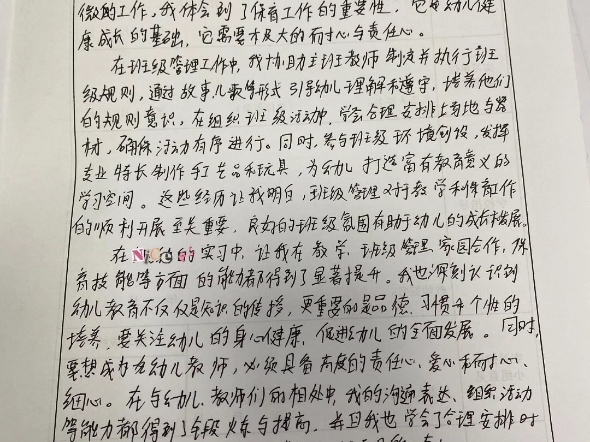 微的工作，我体会到了保育工作的重要性，它是幼儿健
康成长的基础，它需要极大的耐心与责任心。
在班级管理工作中，我协助主班教师制定并执行班
级规则，通过故事、儿歌等形式引导幼儿理解和遵守，培养他们
的规则意识，在组织班级活动中，学会合理安排场地与器
材，确保活动有序进行。同时，参与班级环境创设，发挥
专业特长制作手工艺品和玩具，为幼儿打造富有教育意义的
学习空间。这些经历让我明白，班级管理对于教学和保育工作
的顺利开展至关重要，良好的班级氛围有助于幼儿的成长和发展。
在 的实习中，让我在教学、班级管理、家园合作、保
育技能等方面的能力都得到了显著提升。我也深刻认识到
幼儿教育不仅仅是知识的传授，更重要的是品德、习惯和个性的
培养，要关注幼儿的身心健康，促进幼儿的全面发展。同时，
要想成为幼儿教师，必须具备高度的责任心、爱心和耐心、
细心。在与幼儿、教师们的相处中，我的沟通表达、组织活动
等能力都得到了锻炼与提高，并且我也学会了合理安排时